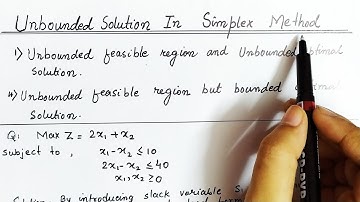 Unbounded Solution In Simplex Method
i) Unbounded feasible region and Unbounded optimal
solution.
ii) Unbounded feasible region but bounded
Solution.
Q: Max Z = 2x₁ + x₂
subject to, x₁ - x₂ ≤ 10
2x₁ - x₂ ≤ 40
x₁, x₂ ≥ 0
By introducing slack variable S,